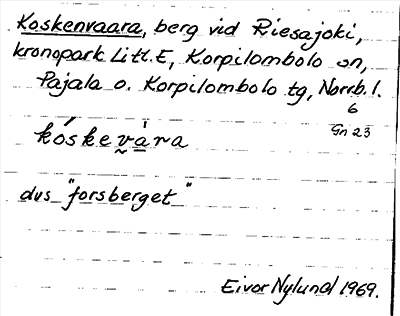 Koskenvaara, berg vid Riesajoki,
kronopark Litt. E, Korpilombolo sn,
Pajala o. Korpilombolo tg, Norrb. l.
6
Gn 23
kóskevàra
dvs "forsberget"
Eivor Nylund 1969.